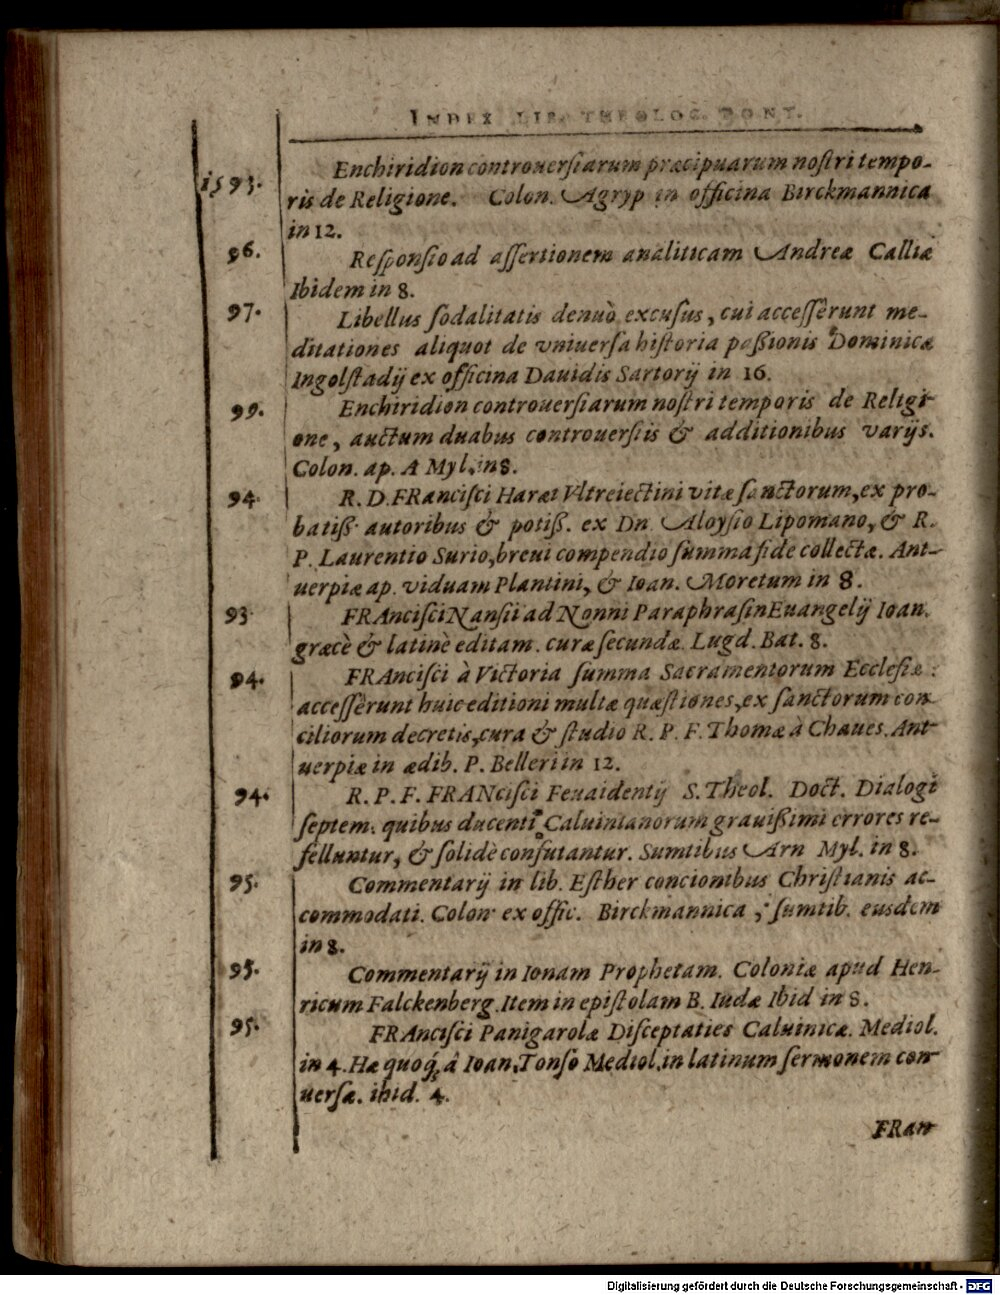 INDEX LIB. THEOLOG. PONT.
1593. Enchiridion controuerſiarum præcipuarum noſtri tempo-
ris de Religione. Colon. Agryp in officina Birckmannica
in 12.
96. Reſponſio ad aſſertionem analiticam Andreæ Calliæ
Ibidem in 8.
97. Libellus ſodalitatis denuò excuſus, cui acceſſêrunt me-
ditationes aliquot de vniuerſa hiſtoria paßionis Dominicæ
Ingolſtadij ex officina Dauidis Sartorij in 16.
99. Enchiridion controuerſiarum noſtri temporis de Religi-
one, auctum duabus controuerſiis & additionibus varijs.
Colon. ap. A Myl. in 8.
94. R. D. FRAnciſci Haræi Vltreiectini vitæ ſanctorum, ex pro-
batiß. autoribus & potiß. ex Dn. Aloyſio Lipomano, & R.
P. Laurentio Surio, breui compendio ſumma fide collectæ. Ant-
uerpiæ ap. viduam Plantini, & Ioan. Moretum in 8.
93 FRAnciſci Nanſii ad Nonni Paraphraſin Euangelij Ioan.
græcè & latinè editam. curæ ſecundæ. Lugd. Bat. 8.
94. FRAnciſci à Victoria ſumma Sacramentorum Eccleſiæ:
acceſſêrunt huic editioni multæ quæſtiones, ex ſanctorum con-
ciliorum decretis, cura & ſtudio R. P. F. Thomæ à Chaues. Ant-
uerpiæ in ædib. P. Belleri in 12.
94. R. P. F. FRANciſci Feuaidentij S. Theol. Doct. Dialogi
ſeptem. quibus ducenti Caluinianorum grauißimi errores re-
felluntur, & ſolidè confutantur. Sumtibus Arn Myl. in 8.
95. Commentarij in lib. Eſther concionibus Chriſtianis ac-
commodati. Colon. ex offic. Birckmannica, ſumtib. eiusdem
in 8.
95. Commentarij in Ionam Prophetam. Coloniæ apud Hen-
ricum Falckenberg. Item in epiſtolam B. Iudæ Ibid in 8.
95. FRAnciſci Panigarolæ Diſceptaties Caluinicæ. Mediol.
in 4. Hæ quoq́; â Ioan. Tonſo Mediol. in latinum ſermonem con-
uerſæ. ibid. 4.
FRan-
Digitalisierung gefördert durch die Deutsche Forschungsgemeinschaft - DFG